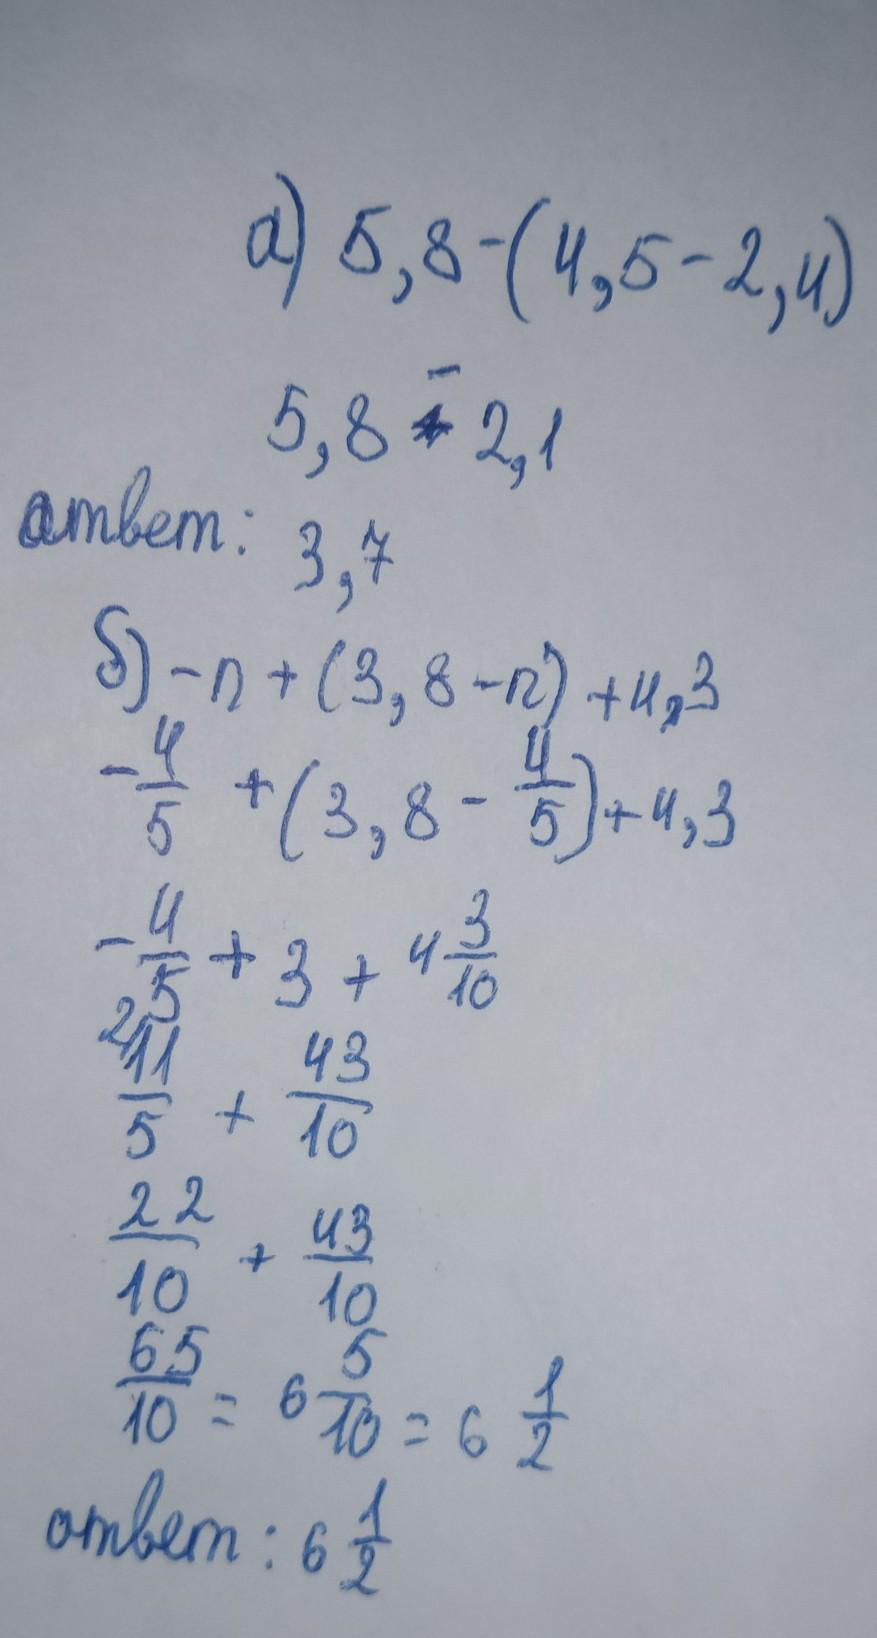 а) 5,8-(4,5-2,4)
5,8 - 2,1
ответ: 3,7
б) -n+(3,8-n)+4,3
-4/5 +(3,8-4/5)+4,3
-4/5 + 3 + 4 3/10
2) 11/5 + 43/10
22/10 + 43/10
65/10 = 6 5/10 = 6 1/2
ответ: 6 1/2